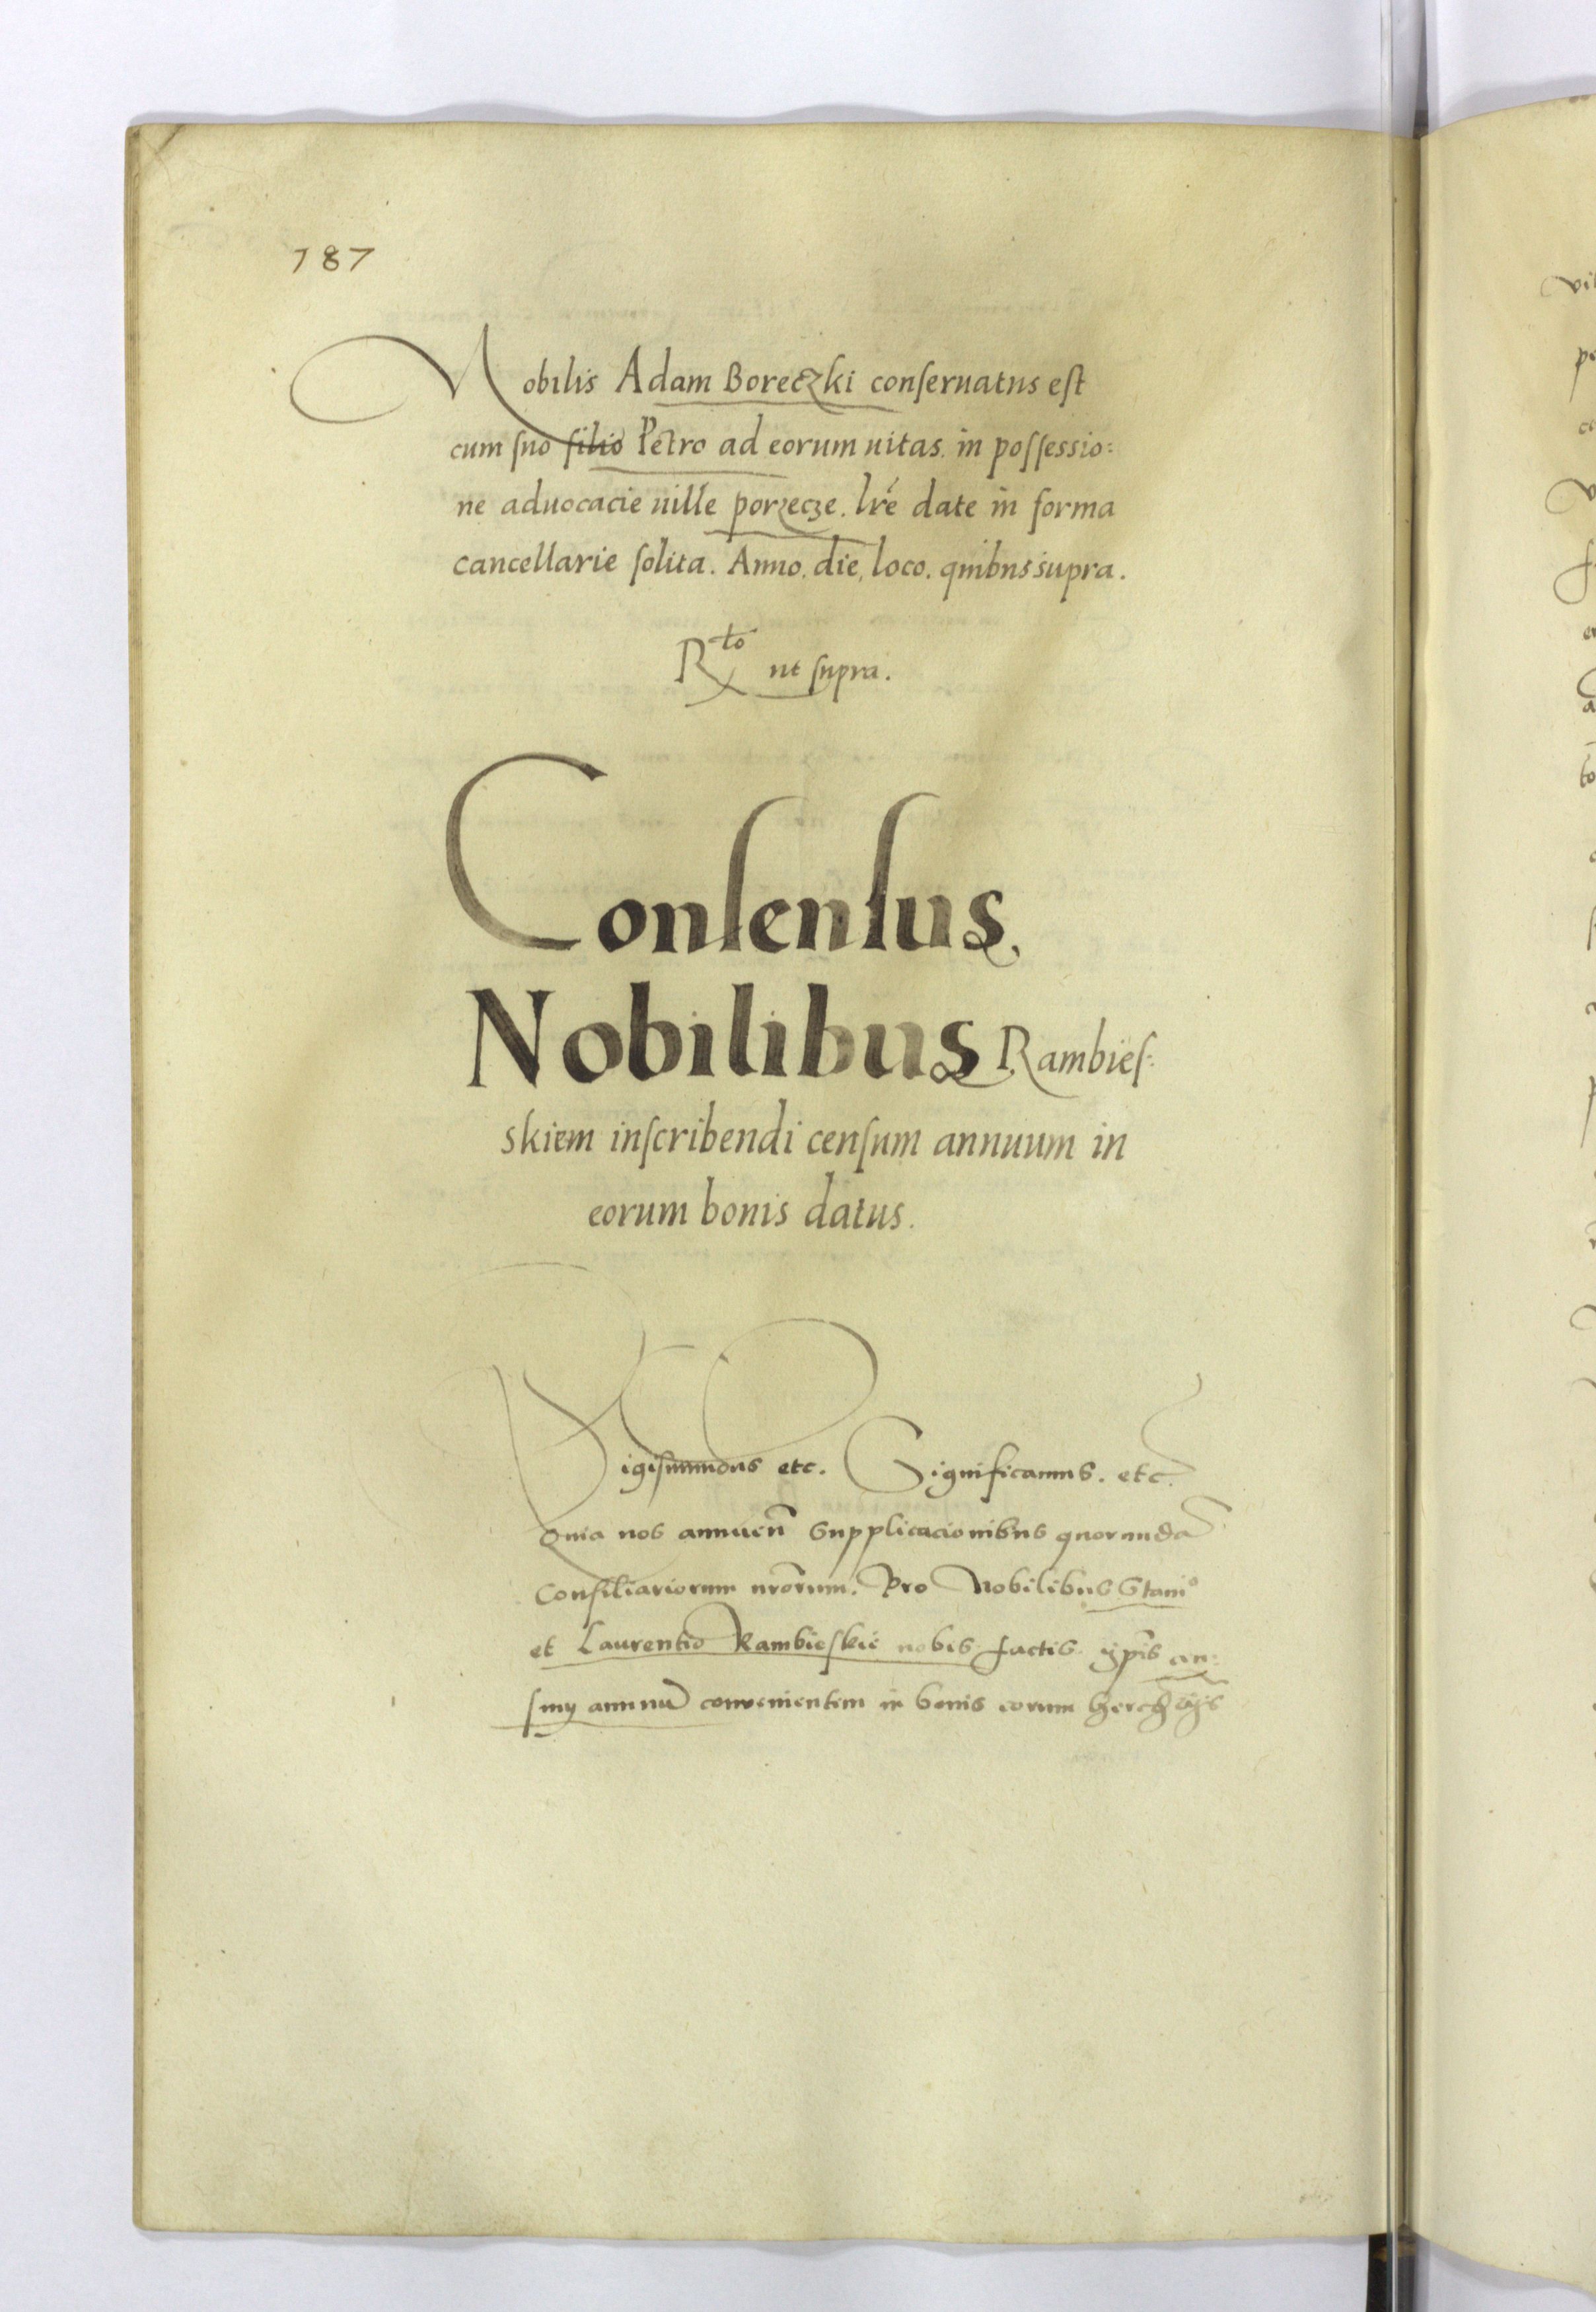 187
Nobilis Adam Boreczki conseruatus est
cum suo filio Petro ad eorum uitas in possessio:
ne aduocacie uille porzecze. lre date in forma
cancellarie solita. Anno. die, loco. quibus supra.
Rto ut supra.
Consensus
Nobilibus Rambies:
skiem inscribendi censum annuum in
eorum bonis datus.
Sigismundus etc. Significamus. etc.
Quia nos annuen supplicacionibus quorunda
Consiliariorum nrorum. Pro Nobilibus Stanio
et Laurentio Rambieskie nobis factis ipis
annuu convenientem in bonis eorum